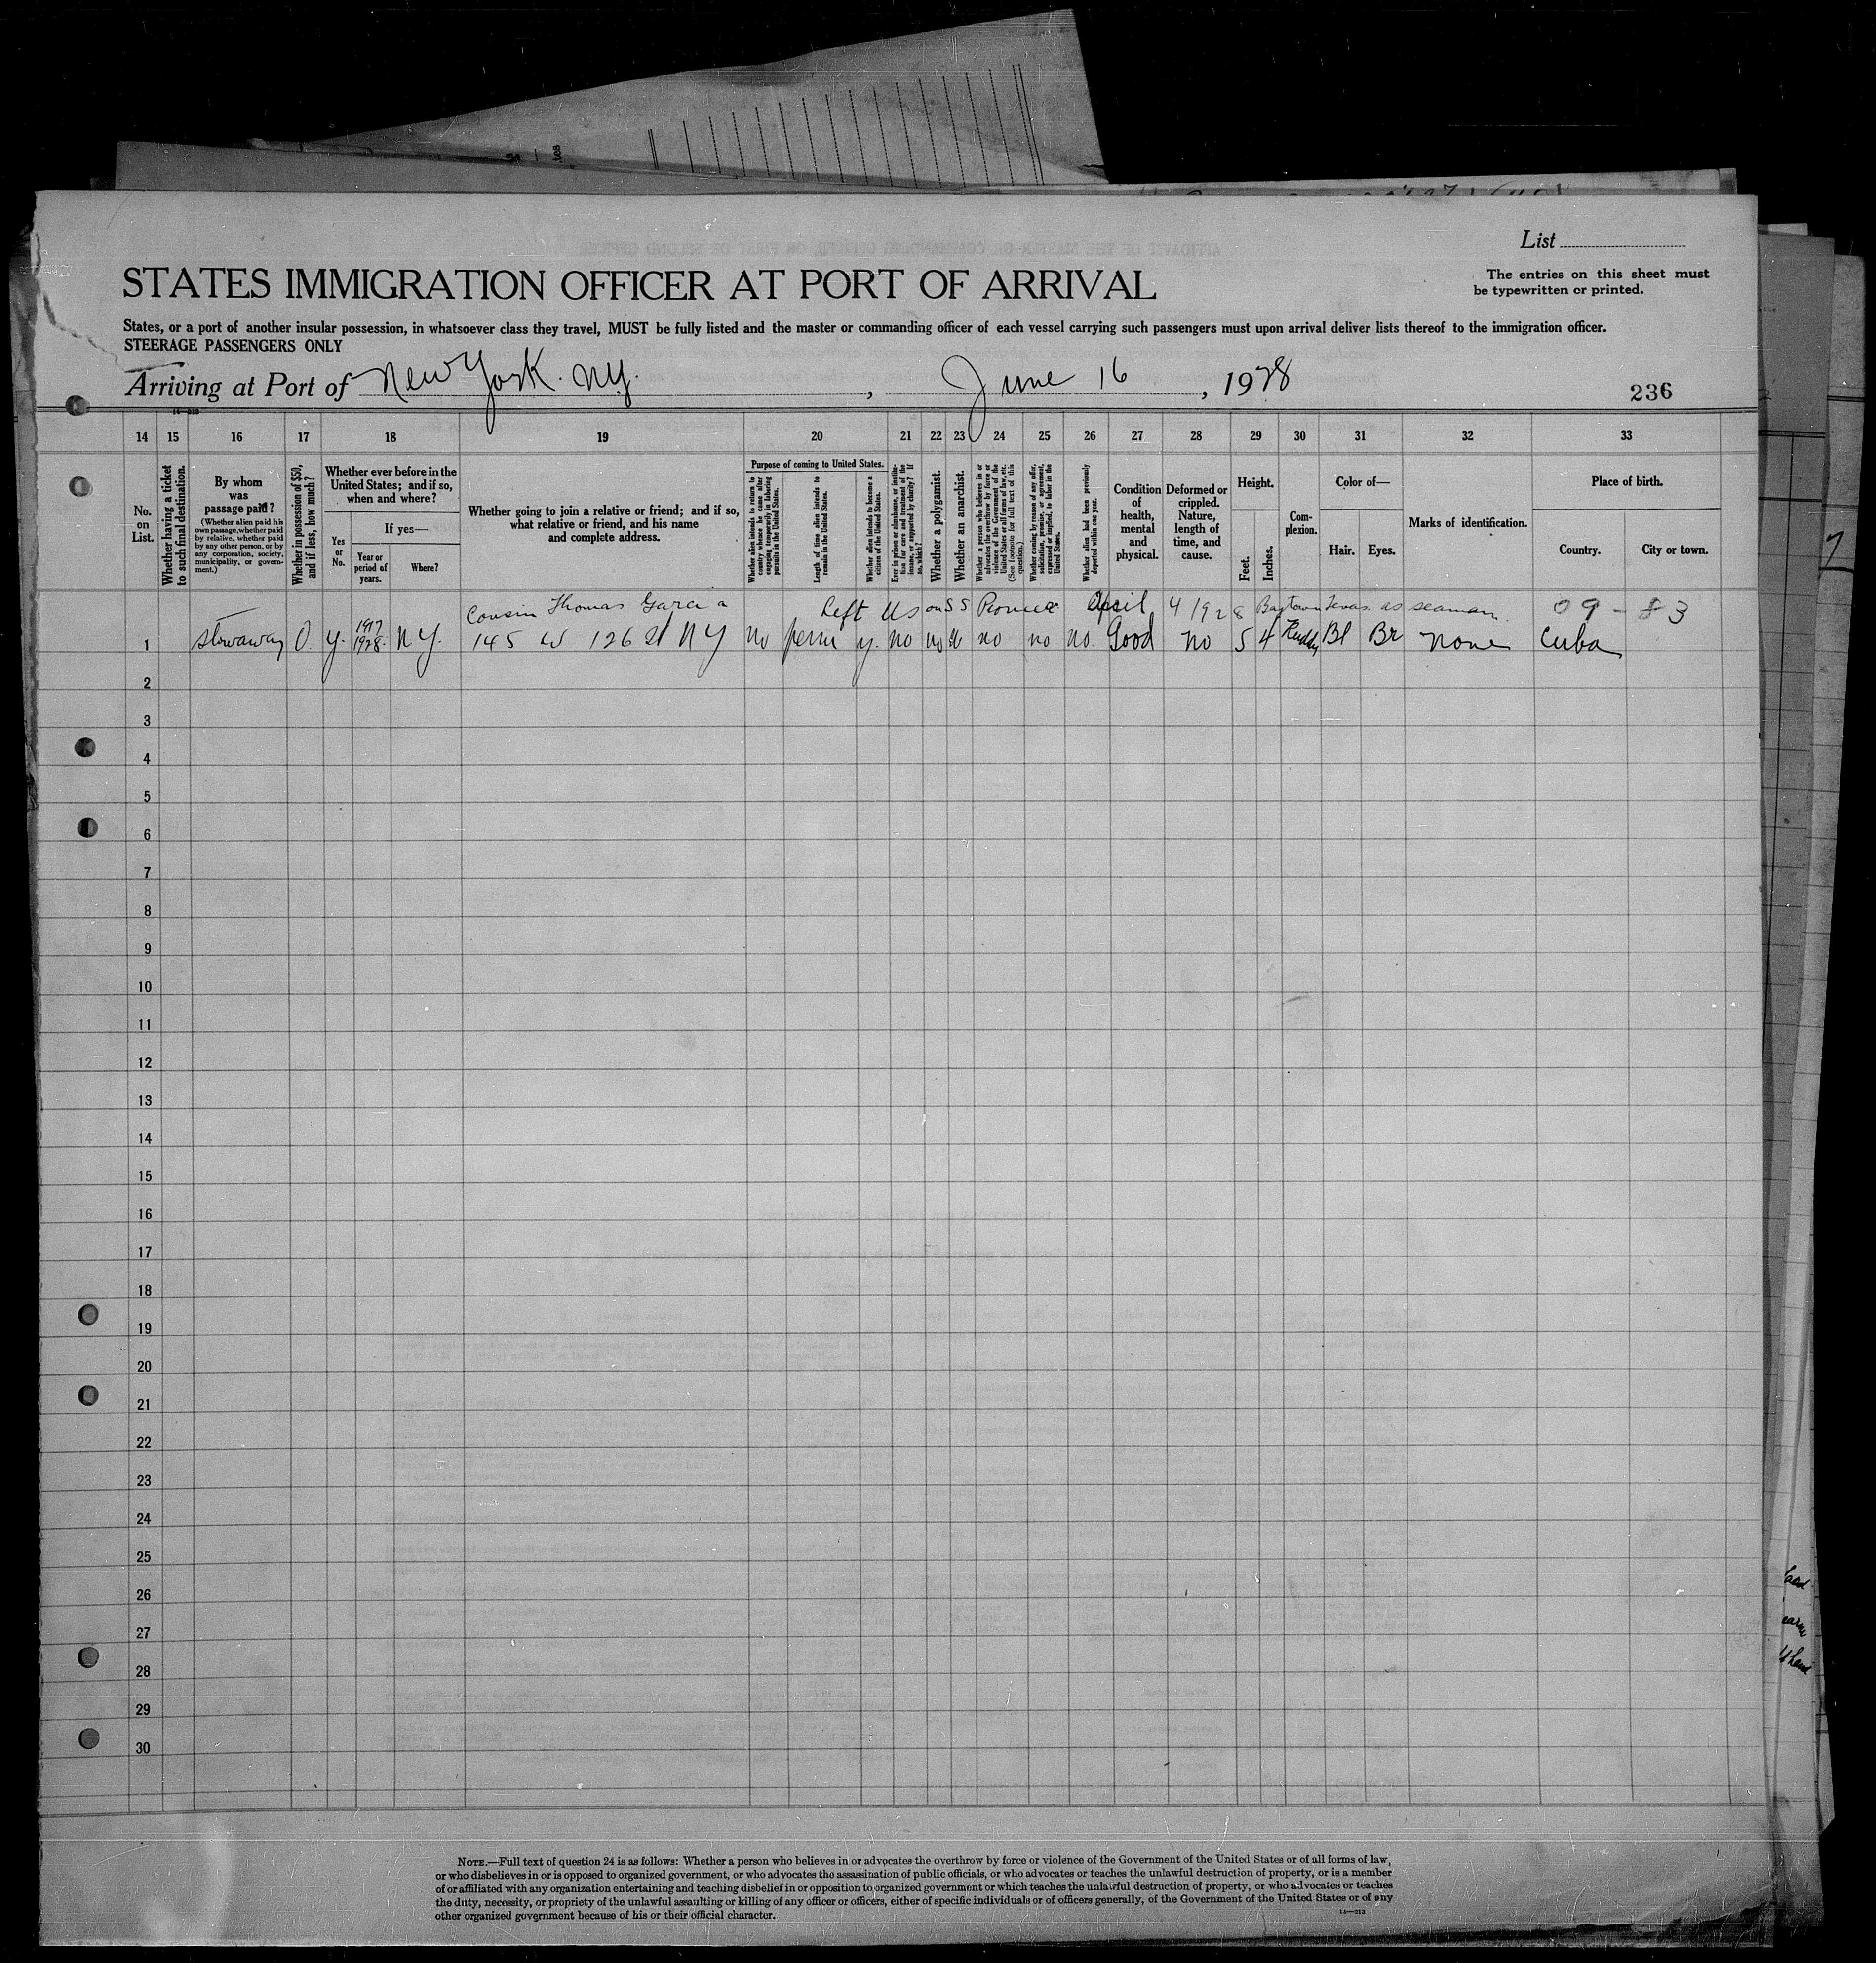 List
STATES IMMIGRATION OFFICER AT PORT OF ARRIVAL
The entries on this sheet must
be typewritten or printed.
States, or a port of another insular possession, in whatsoever class they travel, MUST be fully listed and the master or commanding officer of each vessel carrying such passengers must upon arrival deliver lists thereof to the immigration officer.
STEERAGE PASSENGERS ONLY
Arriving at Port of New York. N.Y. , June 16 , 1928
236
14—213
14 15 16 17 18 19 20 21 22 23 24 25 26 27 28 29 30 31 32 33
No. on List.
Whether having a ticket to such final destination.
By whom was passage paid?
(Whether alien paid his own passage, whether paid by relative, whether paid by any other person, or by any corporation, society, municipality, or government.)
Whether in possession of $50, and if less, how much?
Whether ever before in the United States; and if so, when and where?
Yes or No.
If yes—
Year or period of years.
Where?
Whether going to join a relative or friend; and if so, what relative or friend, and his name and complete address.
Purpose of coming to United States.
Whether alien intends to return to country whence he came after engaging temporarily in laboring pursuits in the United States.
Length of time alien intends to remain in the United States.
Whether alien intends to become a citizen of the United States.
Ever in prison or almshouse, or institution for care and treatment of the insane, or supported by charity? If so, which?
Whether a polygamist.
Whether an anarchist.
Whether a person who believes in or advocates the overthrow by force or violence of the Government of the United States or all forms of law, etc. (See footnote for full text of this question.)
Whether coming by reason of any offer, solicitation, promise, or agreement, expressed or implied, to labor in the United States.
Whether alien had been previously deported within one year.
Condition of health, mental and physical.
Deformed or crippled. Nature, length of time, and cause.
Height.
Feet.
Inches.
Complexion.
Color of—
Hair.
Eyes.
Marks of identification.
Place of birth.
Country.
City or town.
Cousin Thomas Garcia Left US on SS Pioneer April 4 1928 Baytown Texas. as seaman 09 - 3
1 Stowaway O. y. 1917 1928. N.Y. 145 W 126 St N Y no perm y. no no no no no no. Good no 5 4 Ruddy Bl Br none Cuba
2
3
4
5
6
7
8
9
10
11
12
13
14
15
16
17
18
19
20
21
22
23
24
25
26
27
28
29
30
NOTE.—Full text of question 24 is as follows: Whether a person who believes in or advocates the overthrow by force or violence of the Government of the United States or of all forms of law,
or who disbelieves in or is opposed to organized government, or who advocates the assassination of public officials, or who advocates or teaches the unlawful destruction of property, or is a member
of or affiliated with any organization entertaining and teaching disbelief in or opposition to organized government or which teaches the unlawful destruction of property, or who advocates or teaches
the duty, necessity, or propriety of the unlawful assaulting or killing of any officer or officers, either of specific individuals or of officers generally, of the Government of the United States or of any
other organized government because of his or their official character.
14—213